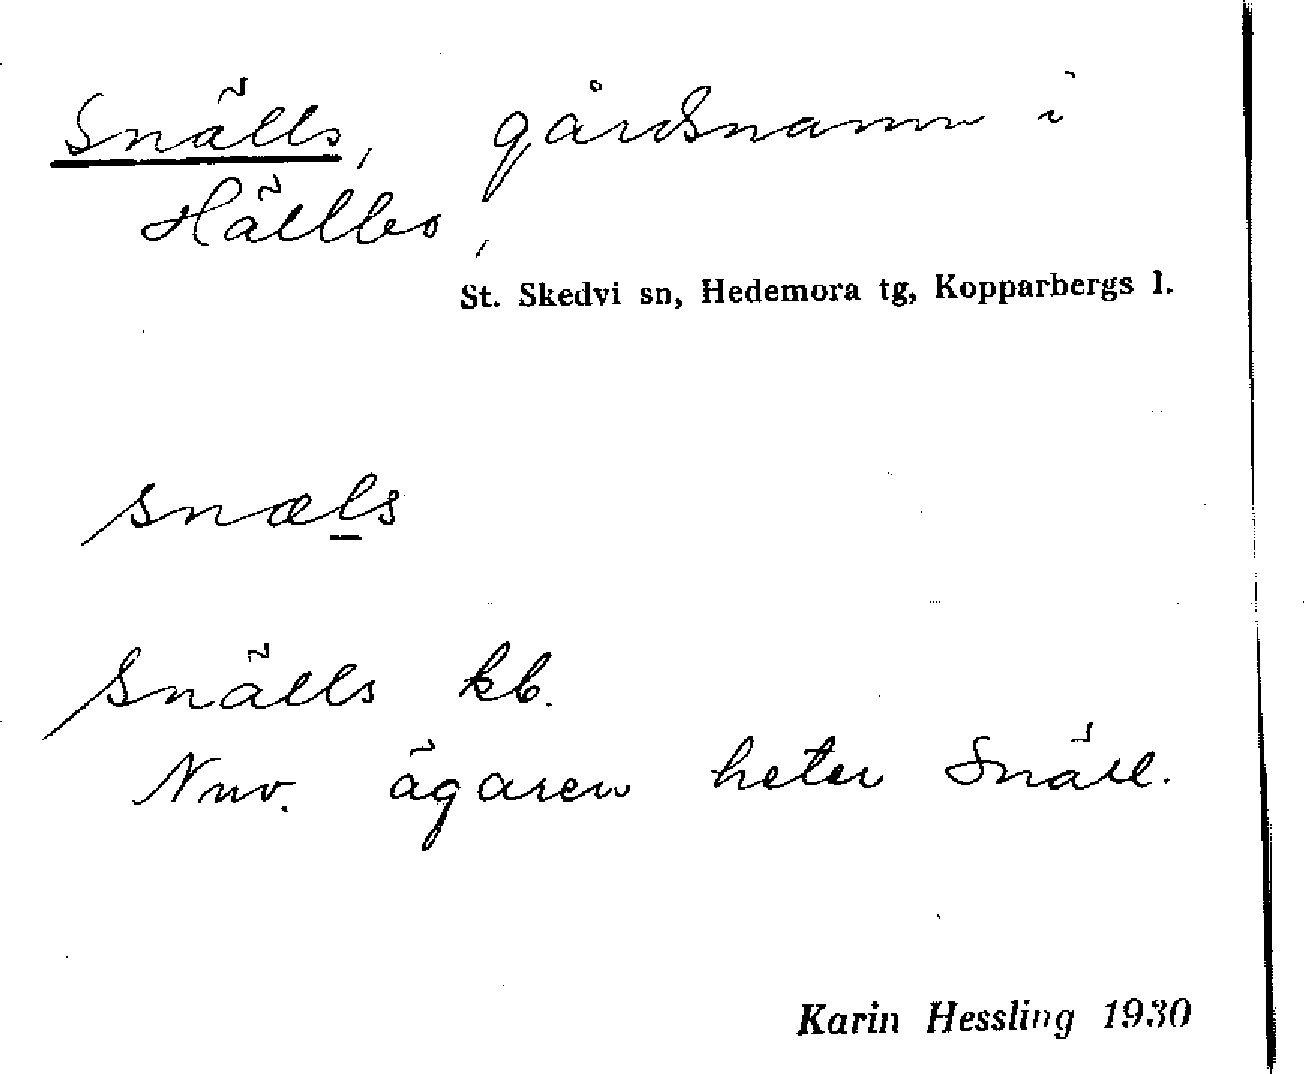 Snälls, gårdsnamn i
Hällbo,
St. Skedvi sn, Hedemora tg, Kopparbergs l.
snæls
Snälls kb.
Nuv. ägaren heter Snäll.
Karin Hessling 1930